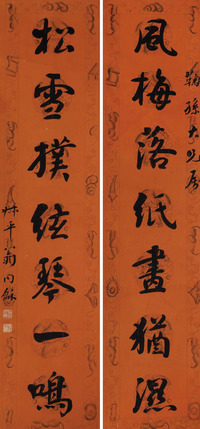 鞠孫大兄屬
風梅落紙畫猶濕
松雪撲絃琴一鳴
叔平翁同龢